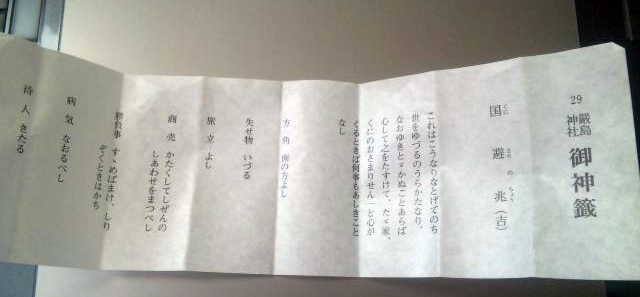 29 嚴島神社 御神籤
国避兆(吉)
くに さり の ちょう
これはこうなりなとげてのち
世をゆづるのうらかたなり、
なおゆきとゞかぬことあらば
心して之をたすけて、たゞ家、
くにのおさまりせん一と心が
くるときは何事もあしきこと
なし
方角 南の方よし
失せ物 いづる
旅立 よし
商売 かたくしてしぜんの
しあわせをまつべし
勝負事 すゝめばまけ、しり
ぞくときはかち
病気 なおるべし
待人 きたる